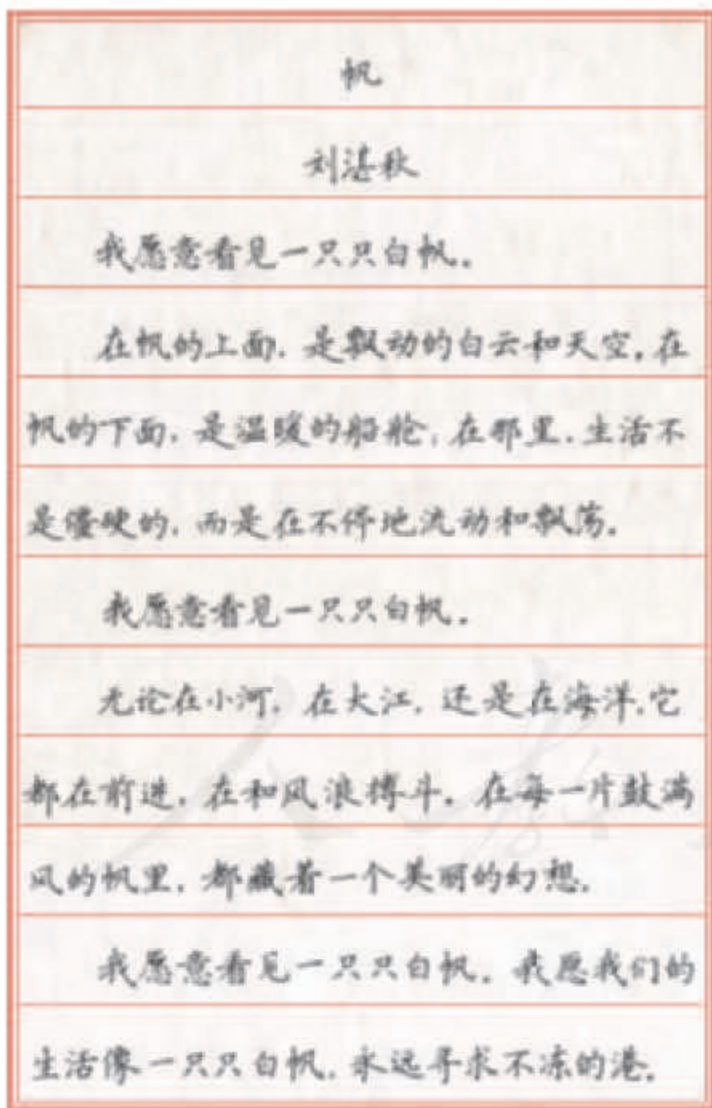 帆
刘湛秋
我愿意看见一只只白帆。
在帆的上面，是飘动的白云和天空。在
帆的下面，是温暖的船舱，在那里，生活不
是僵硬的，而是在不停地流动和飘荡。
我愿意看见一只只白帆。
无论在小河，在大江，还是在海洋，它
都在前进，在和风浪搏斗。在每一片鼓满
风的帆里，都藏着一个美丽的幻想。
我愿意看见一只只白帆。我愿我们的
生活像一只只白帆，永远寻求不冻的港。